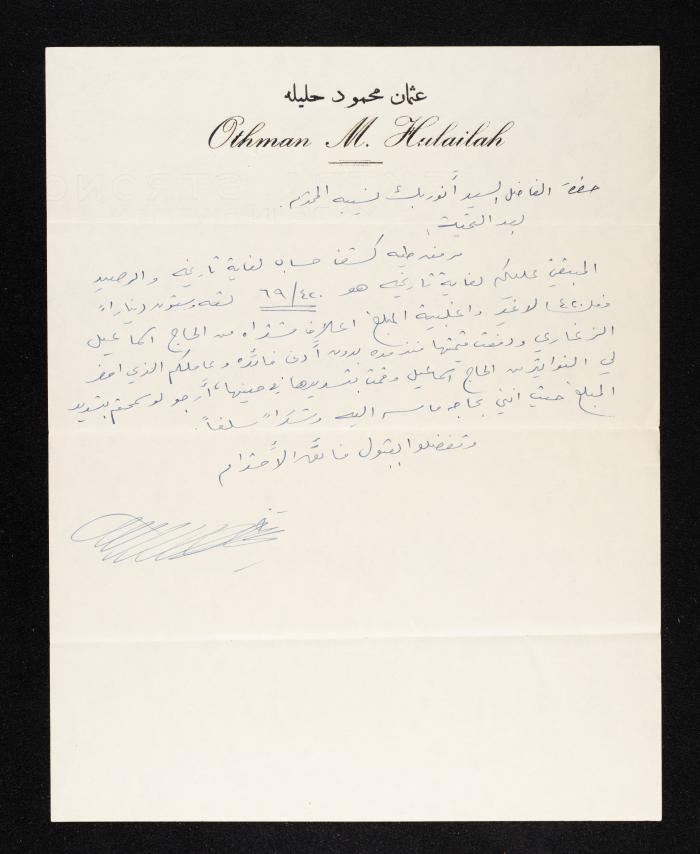 عثمان محمود حليله
Othman M. Hulailah
حضرة الفاضل السيد أنور بك نسيبه المحترم
بعد التحيات
مرفق طيه كشف حساب لغاية تاريخه والرصيد
المتبقي عليكم لغاية تاريخه هو ٦٩/٤٢٠ تسعه وستون ديناراً
و ٤٢٠ فلس لا غير واغلبية المبلغ اعلاف مشتراه من الحاج اسماعيل
الزغاري ودفعت قيمتها منذ مده بدون أدنى فائده وعاملكم الذي احضر
لي الفواتير من الحاج اسماعيل وقمت بتسديدها في حينها، أرجو لو سمحتم بتسديد
المبلغ حيث انني بحاجه ماسه اليه وشكراً سلفاً.
وتفضلوا بقبول فائق الأحترام